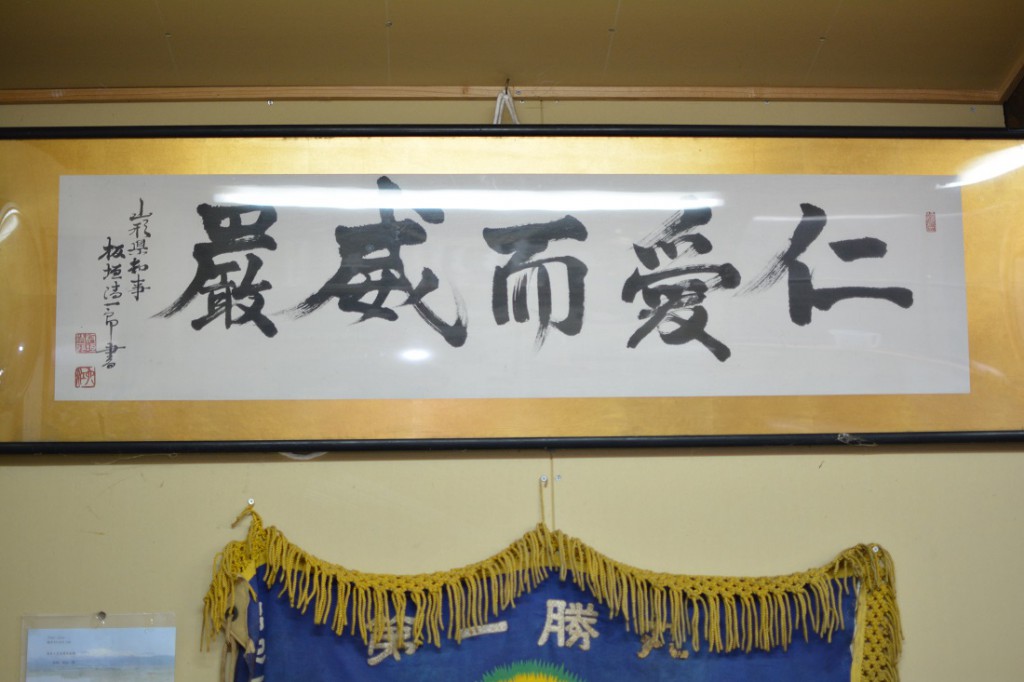 仁愛而威嚴
山形県知事
板垣清一郎書
第一勝